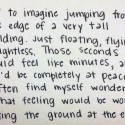 to imagine jumping fro
edge of a very tall
lding. Just floating, flyi
ightless. Those seconds
ld feel like minutes, a
'd be completely at peac
ften find myself wonder
hat feeling would be wo
ing the ground at the e